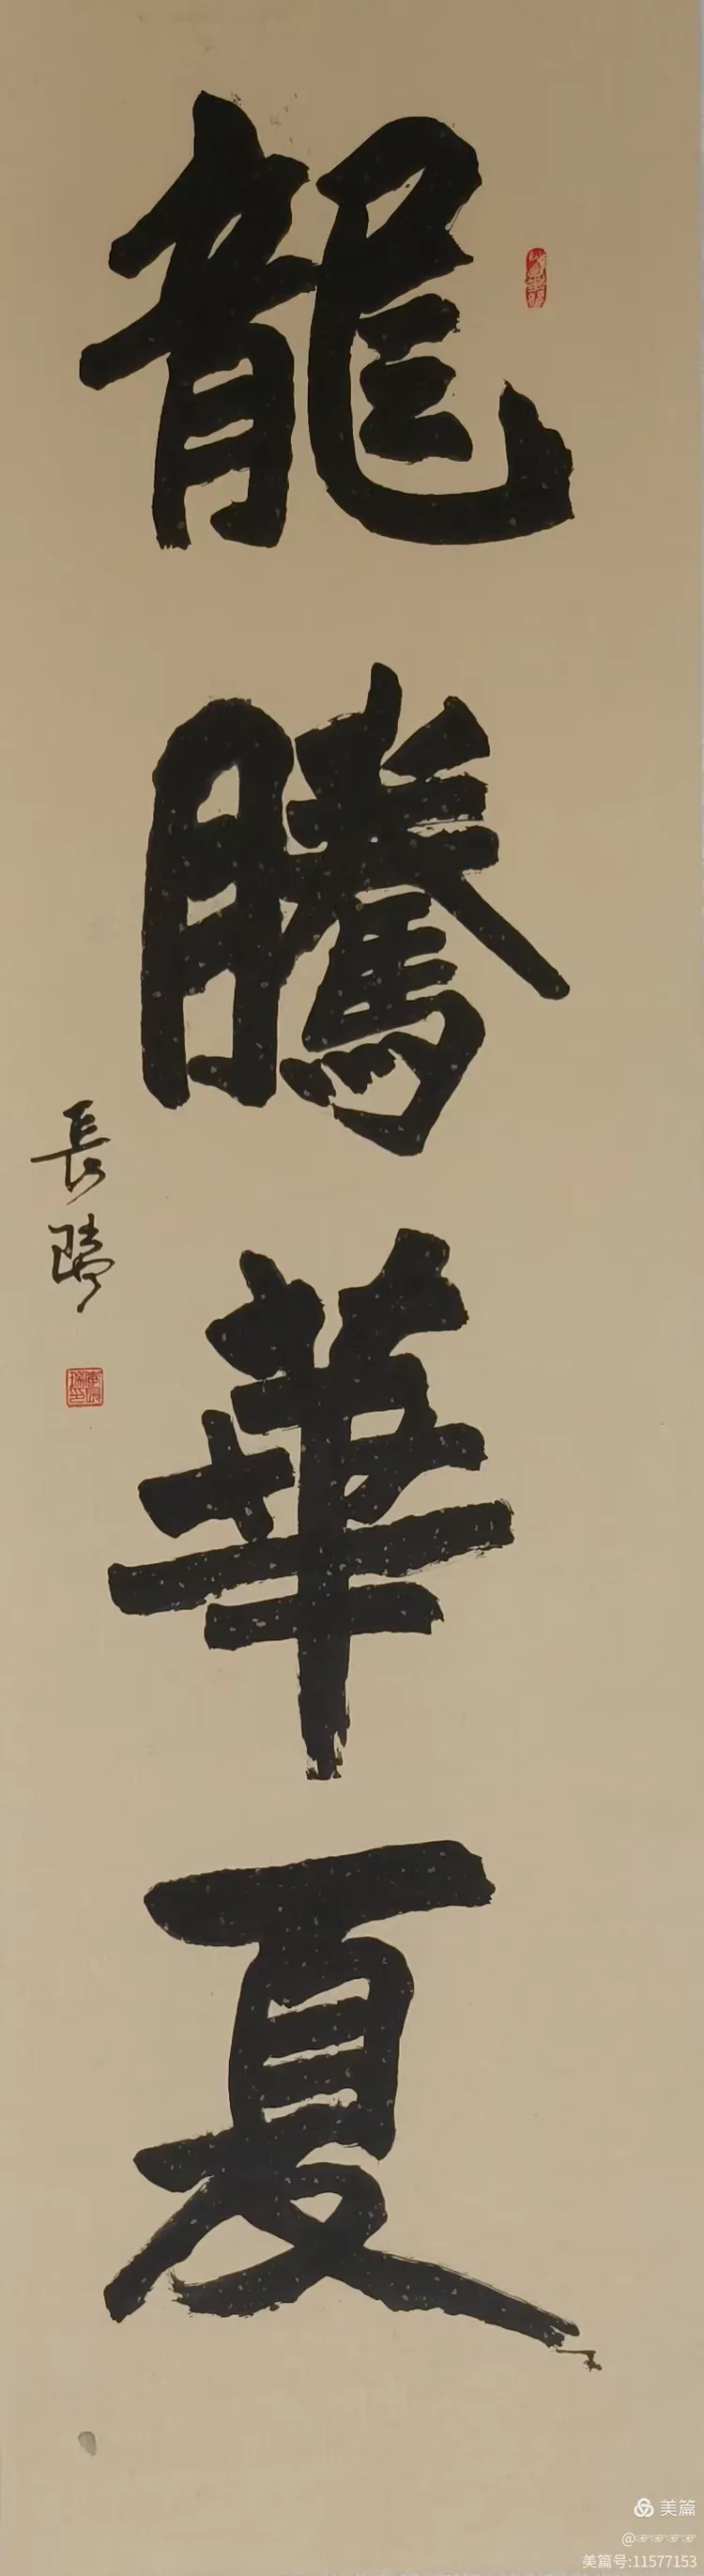 龍騰華夏
長
美篇
美篇号:11577153